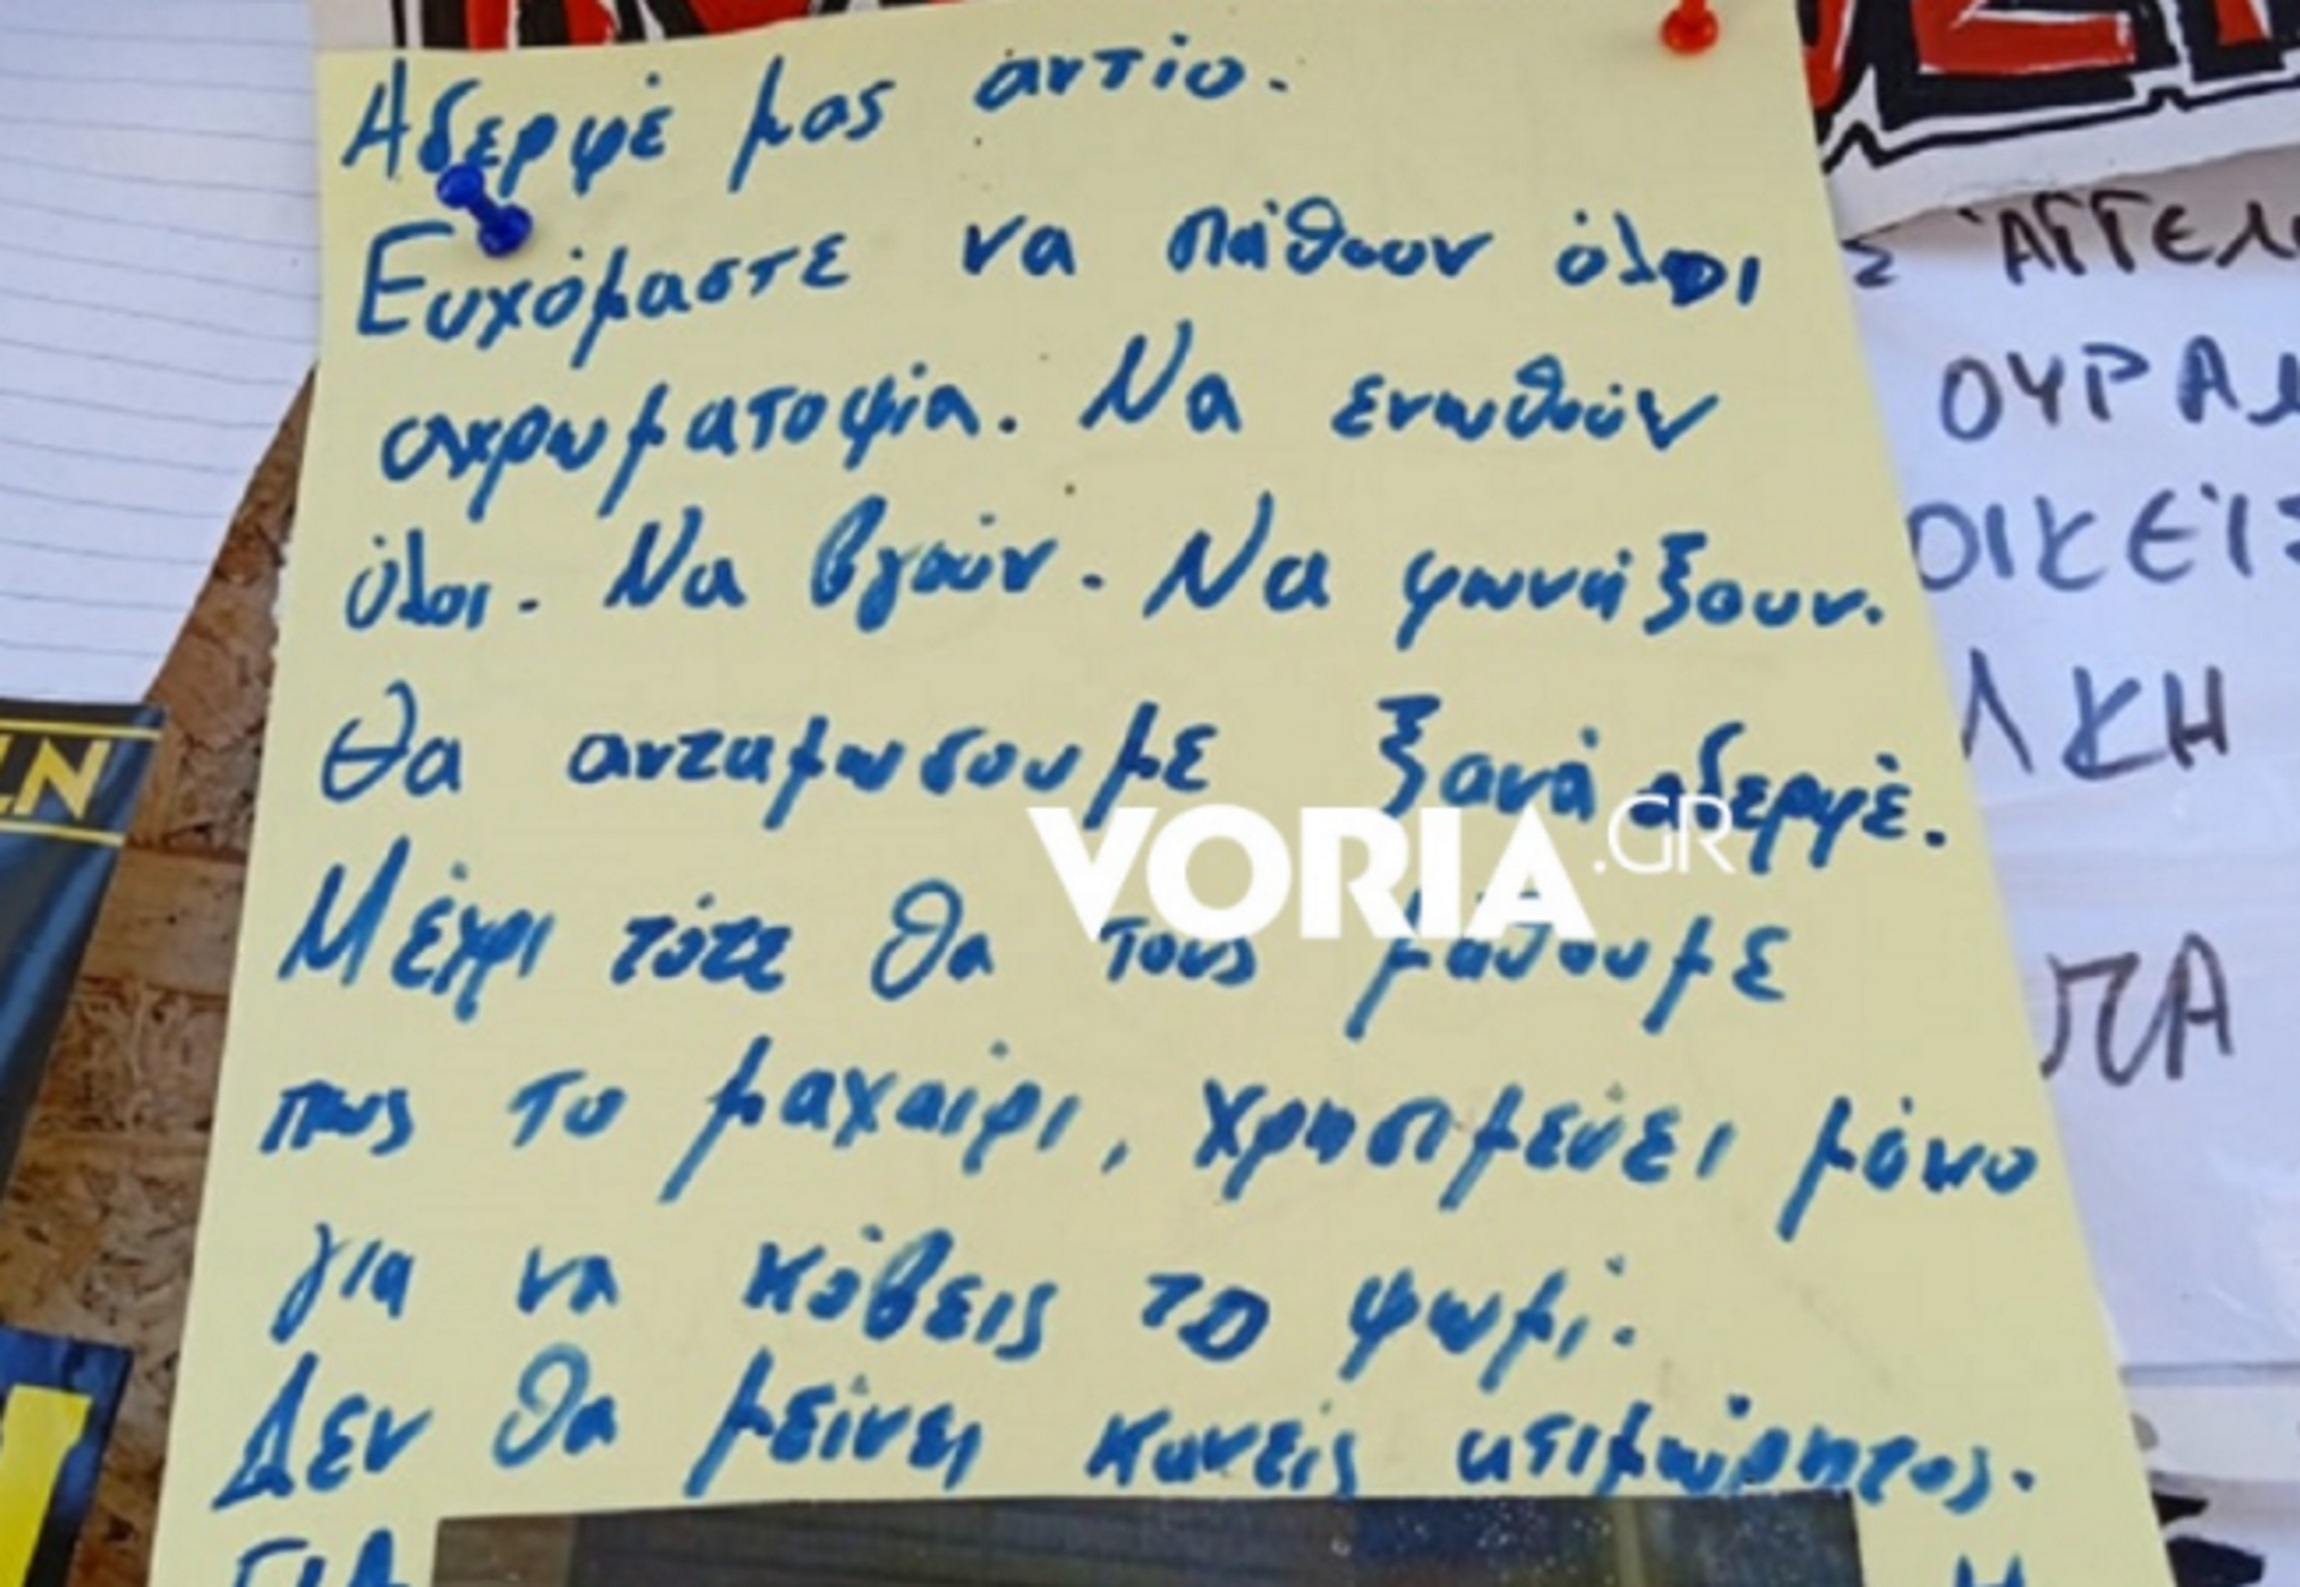 Αδερφέ μας αντίο.
Ευχόμαστε να πάθουν όλοι
αχρωματοψία. Να ενωθούν
όλοι. Να βγούν. Να φωνάξουν.
Θα ανταμωσουμε ξανά αδερφέ.
Μέχρι τότε θα τους μάθουμε
πως το μαχαίρι, χρησιμεύει μόνο
για να κόβεις το ψωμί.
Δεν θα μείνει κανείς ατιμώρητος.
ΓΙΑ
VORIA.GR
LN
ΟΥΡΑ
ΟΙΚΕΊ
ΛΚΗ
ΠΑ